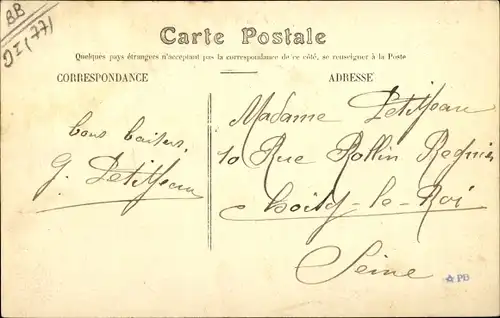 BB
DI (77)
Carte Postale
Quelques pays étrangers n'acceptant pas la correspondance de ce côté, se renseigner à la Poste
CORRESPONDANCE
ADRESSE
bons baisers,
G. Petitjeau
Madame Petitjeau
10 Rue Rollin Regnier
Choisy-le-Roi
Seine
PB